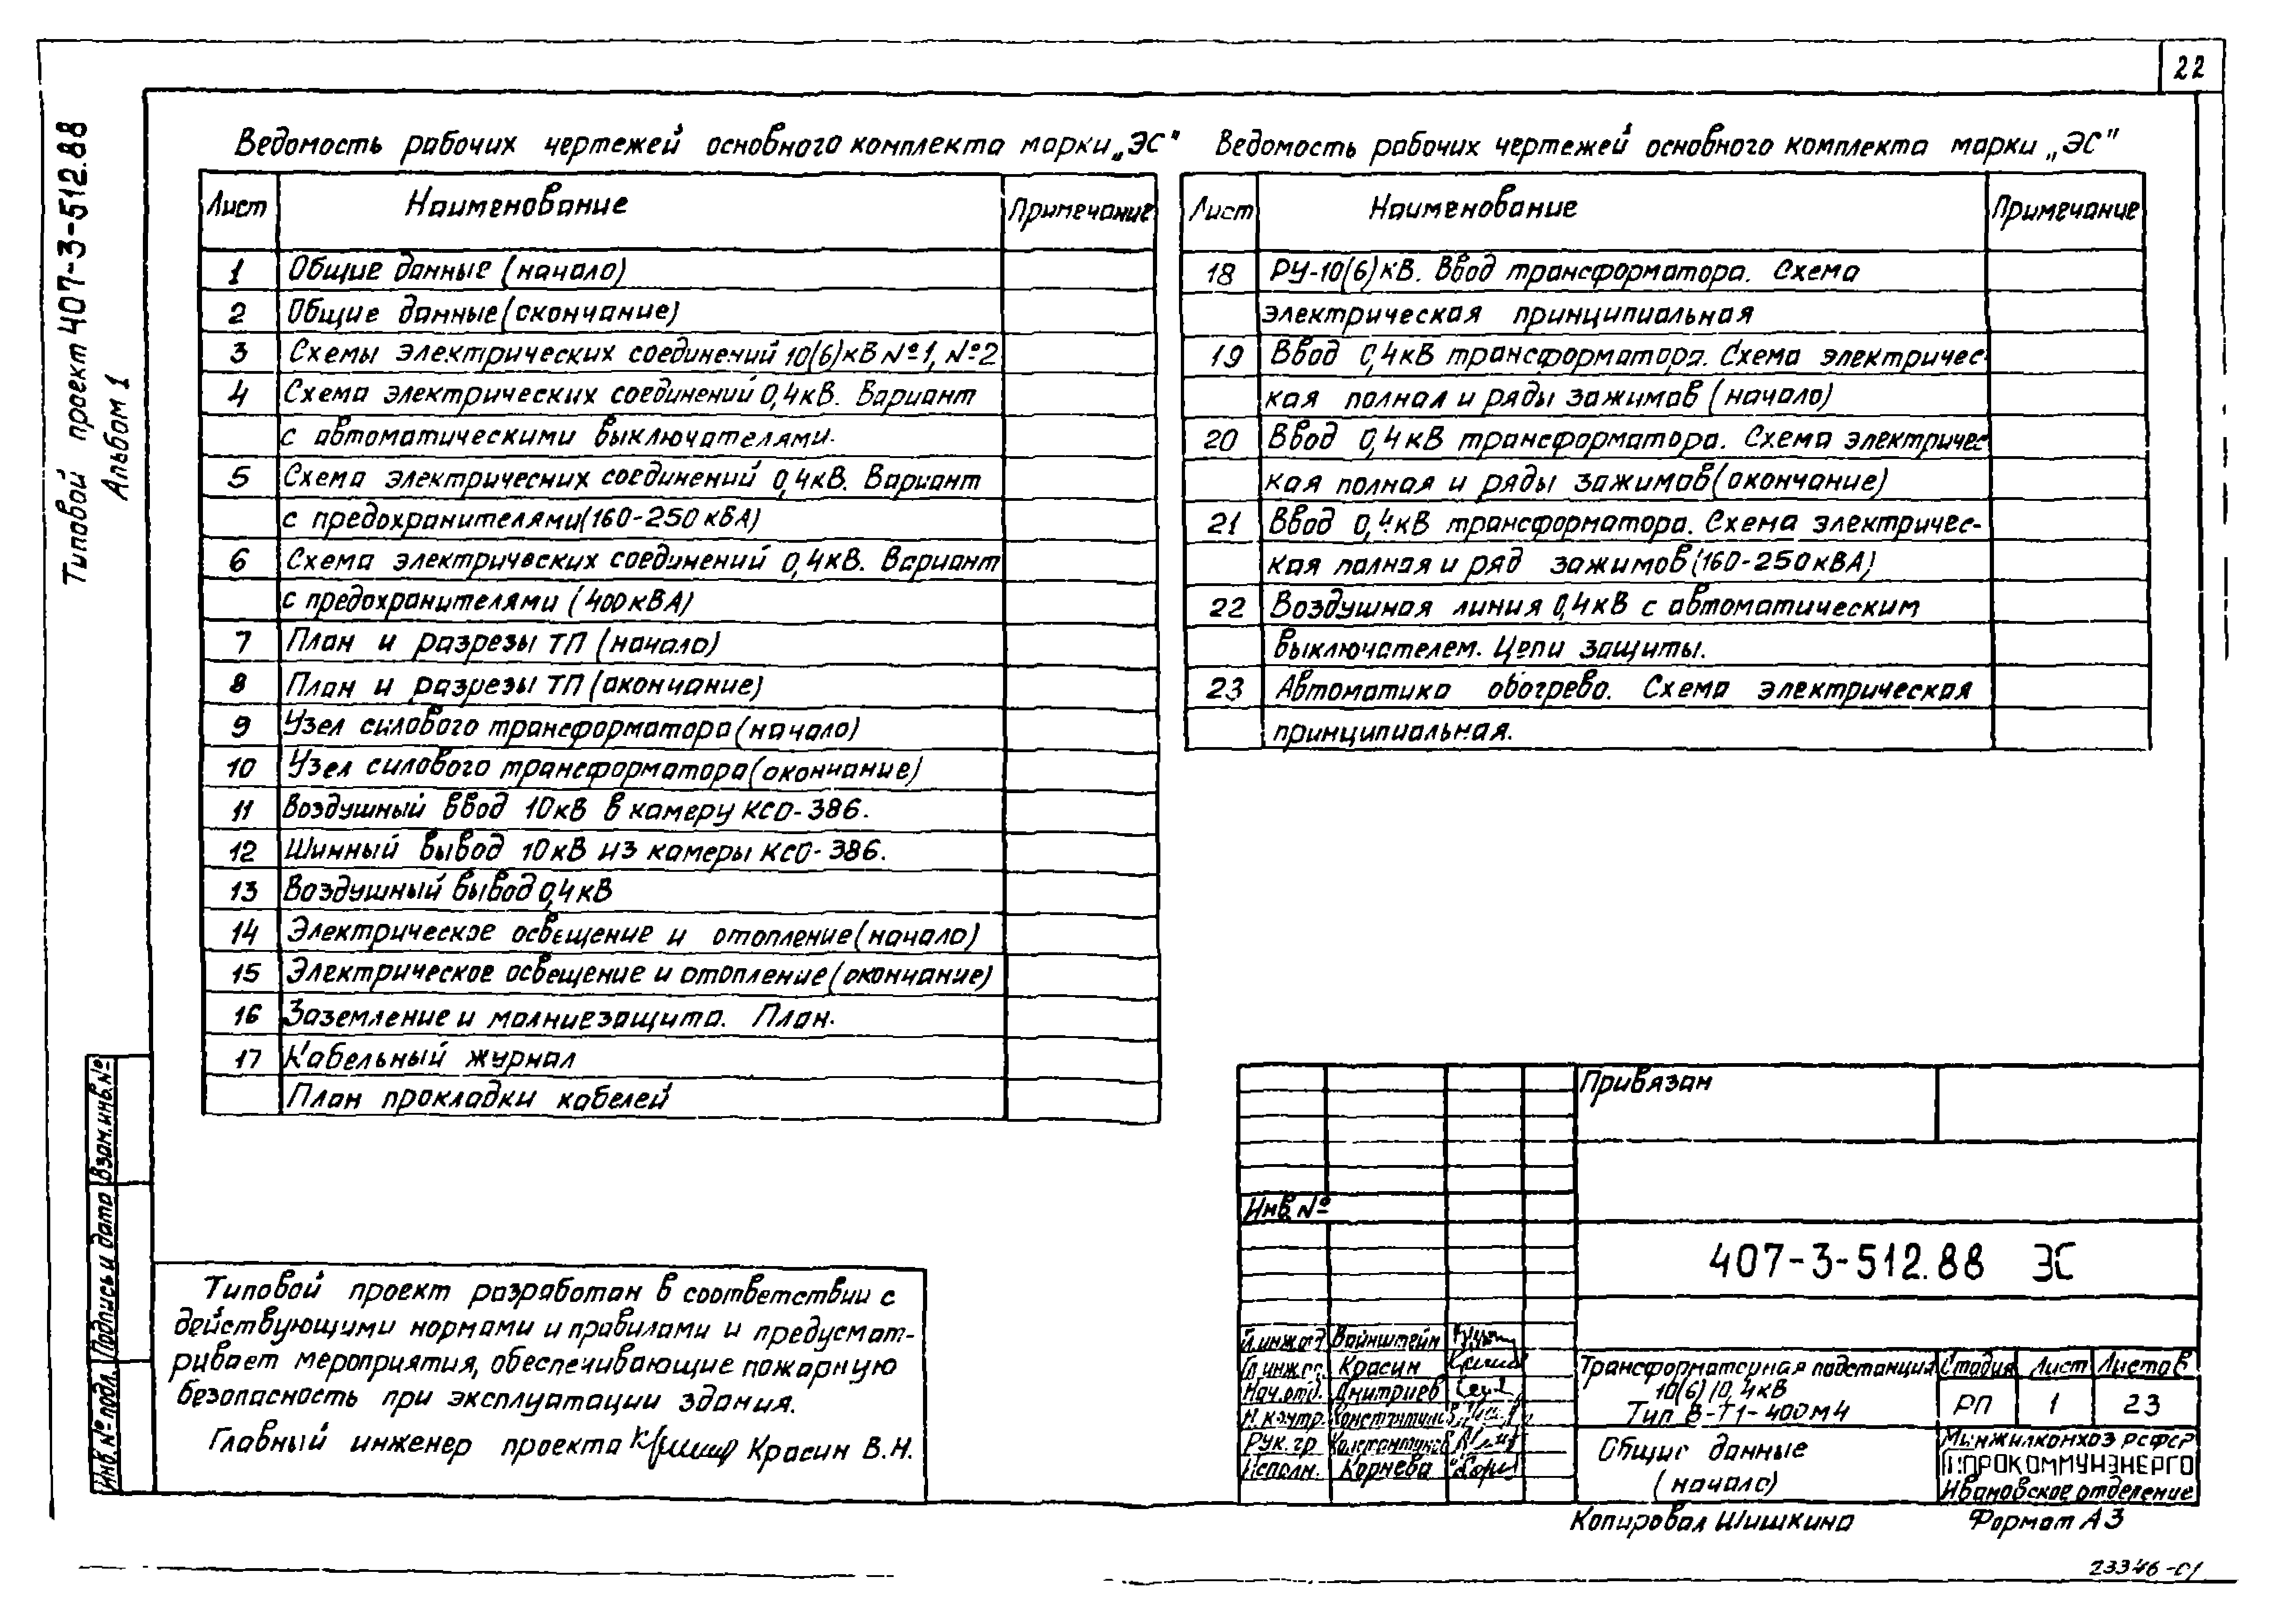 22
Типовой проект 407-3-512.88
Альбом 1
Ведомость рабочих чертежей основного комплекта марки „ЭС"
Лист Наименование Примечание
1 Общие данные (начало)
2 Общие данные (окончание)
3 Схемы электрических соединений 10(6)кВ №1, №2
4 Схема электрических соединений 0,4кВ. Вариант
с автоматическими выключателями.
5 Схема электрических соединений 0,4кВ. Вариант
с предохранителями (160-250 кВА)
6 Схема электрических соединений 0,4кВ. Вариант
с предохранителями (400 кВА)
7 План и разрезы ТП (начало)
8 План и разрезы ТП (окончание)
9 Узел силового трансформатора (начало)
10 Узел силового трансформатора (окончание)
11 Воздушный ввод 10кВ в камеру КСО-386.
12 Шинный вывод 10кВ из камеры КСО-386.
13 Воздушный вывод 0,4кВ
14 Электрическое освещение и отопление (начало)
15 Электрическое освещение и отопление (окончание)
16 Заземление и молниезащита. План.
17 Кабельный журнал
План прокладки кабелей
Ведомость рабочих чертежей основного комплекта марки „ЭС"
Лист Наименование Примечание
18 РУ-10(6)кВ. Ввод трансформатора. Схема
электрическая принципиальная
19 Ввод 0,4кВ трансформатора. Схема электричес-
кая полная и ряды зажимов (начало)
20 Ввод 0,4кВ трансформатора. Схема электричес
кая полная и ряды зажимов (окончание)
21 Ввод 0,4кВ трансформатора. Схема электричес-
кая полная и ряд зажимов (160-250кВА)
22 Воздушная линия 0,4кВ с автоматическим
выключателем. Цепи защиты.
23 Автоматика обогрева. Схема электрическая
принципиальная.
Взам.инв.№
Подпись и дата
Инв.№ подл.
Типовой проект разработан в соответствии с
действующими нормами и правилами и предусмат-
ривает мероприятия, обеспечивающие пожарную
безопасность при эксплуатации здания.
Главный инженер проекта Красин В.Н.
Привязан
Инв.№
407-3-512.88 ЭС
Гл.инж.отд Вайнштейн
Гл.инж.пр. Красин
Нач.отд. Дмитриев
Н.контр.
Рук.гр.
Исполн. Корнева
Трансформаторная подстанция
10(6)/0,4кВ
Тип В-Т1-400М4
Стадия Лист Листов
РП 1 23
Общие данные
(начало)
Минжилкомхоз РСФСР
ГИПРОКОММУНЭНЕРГО
Ивановское отделение
Копировал Шишкина Формат А3
23346-01